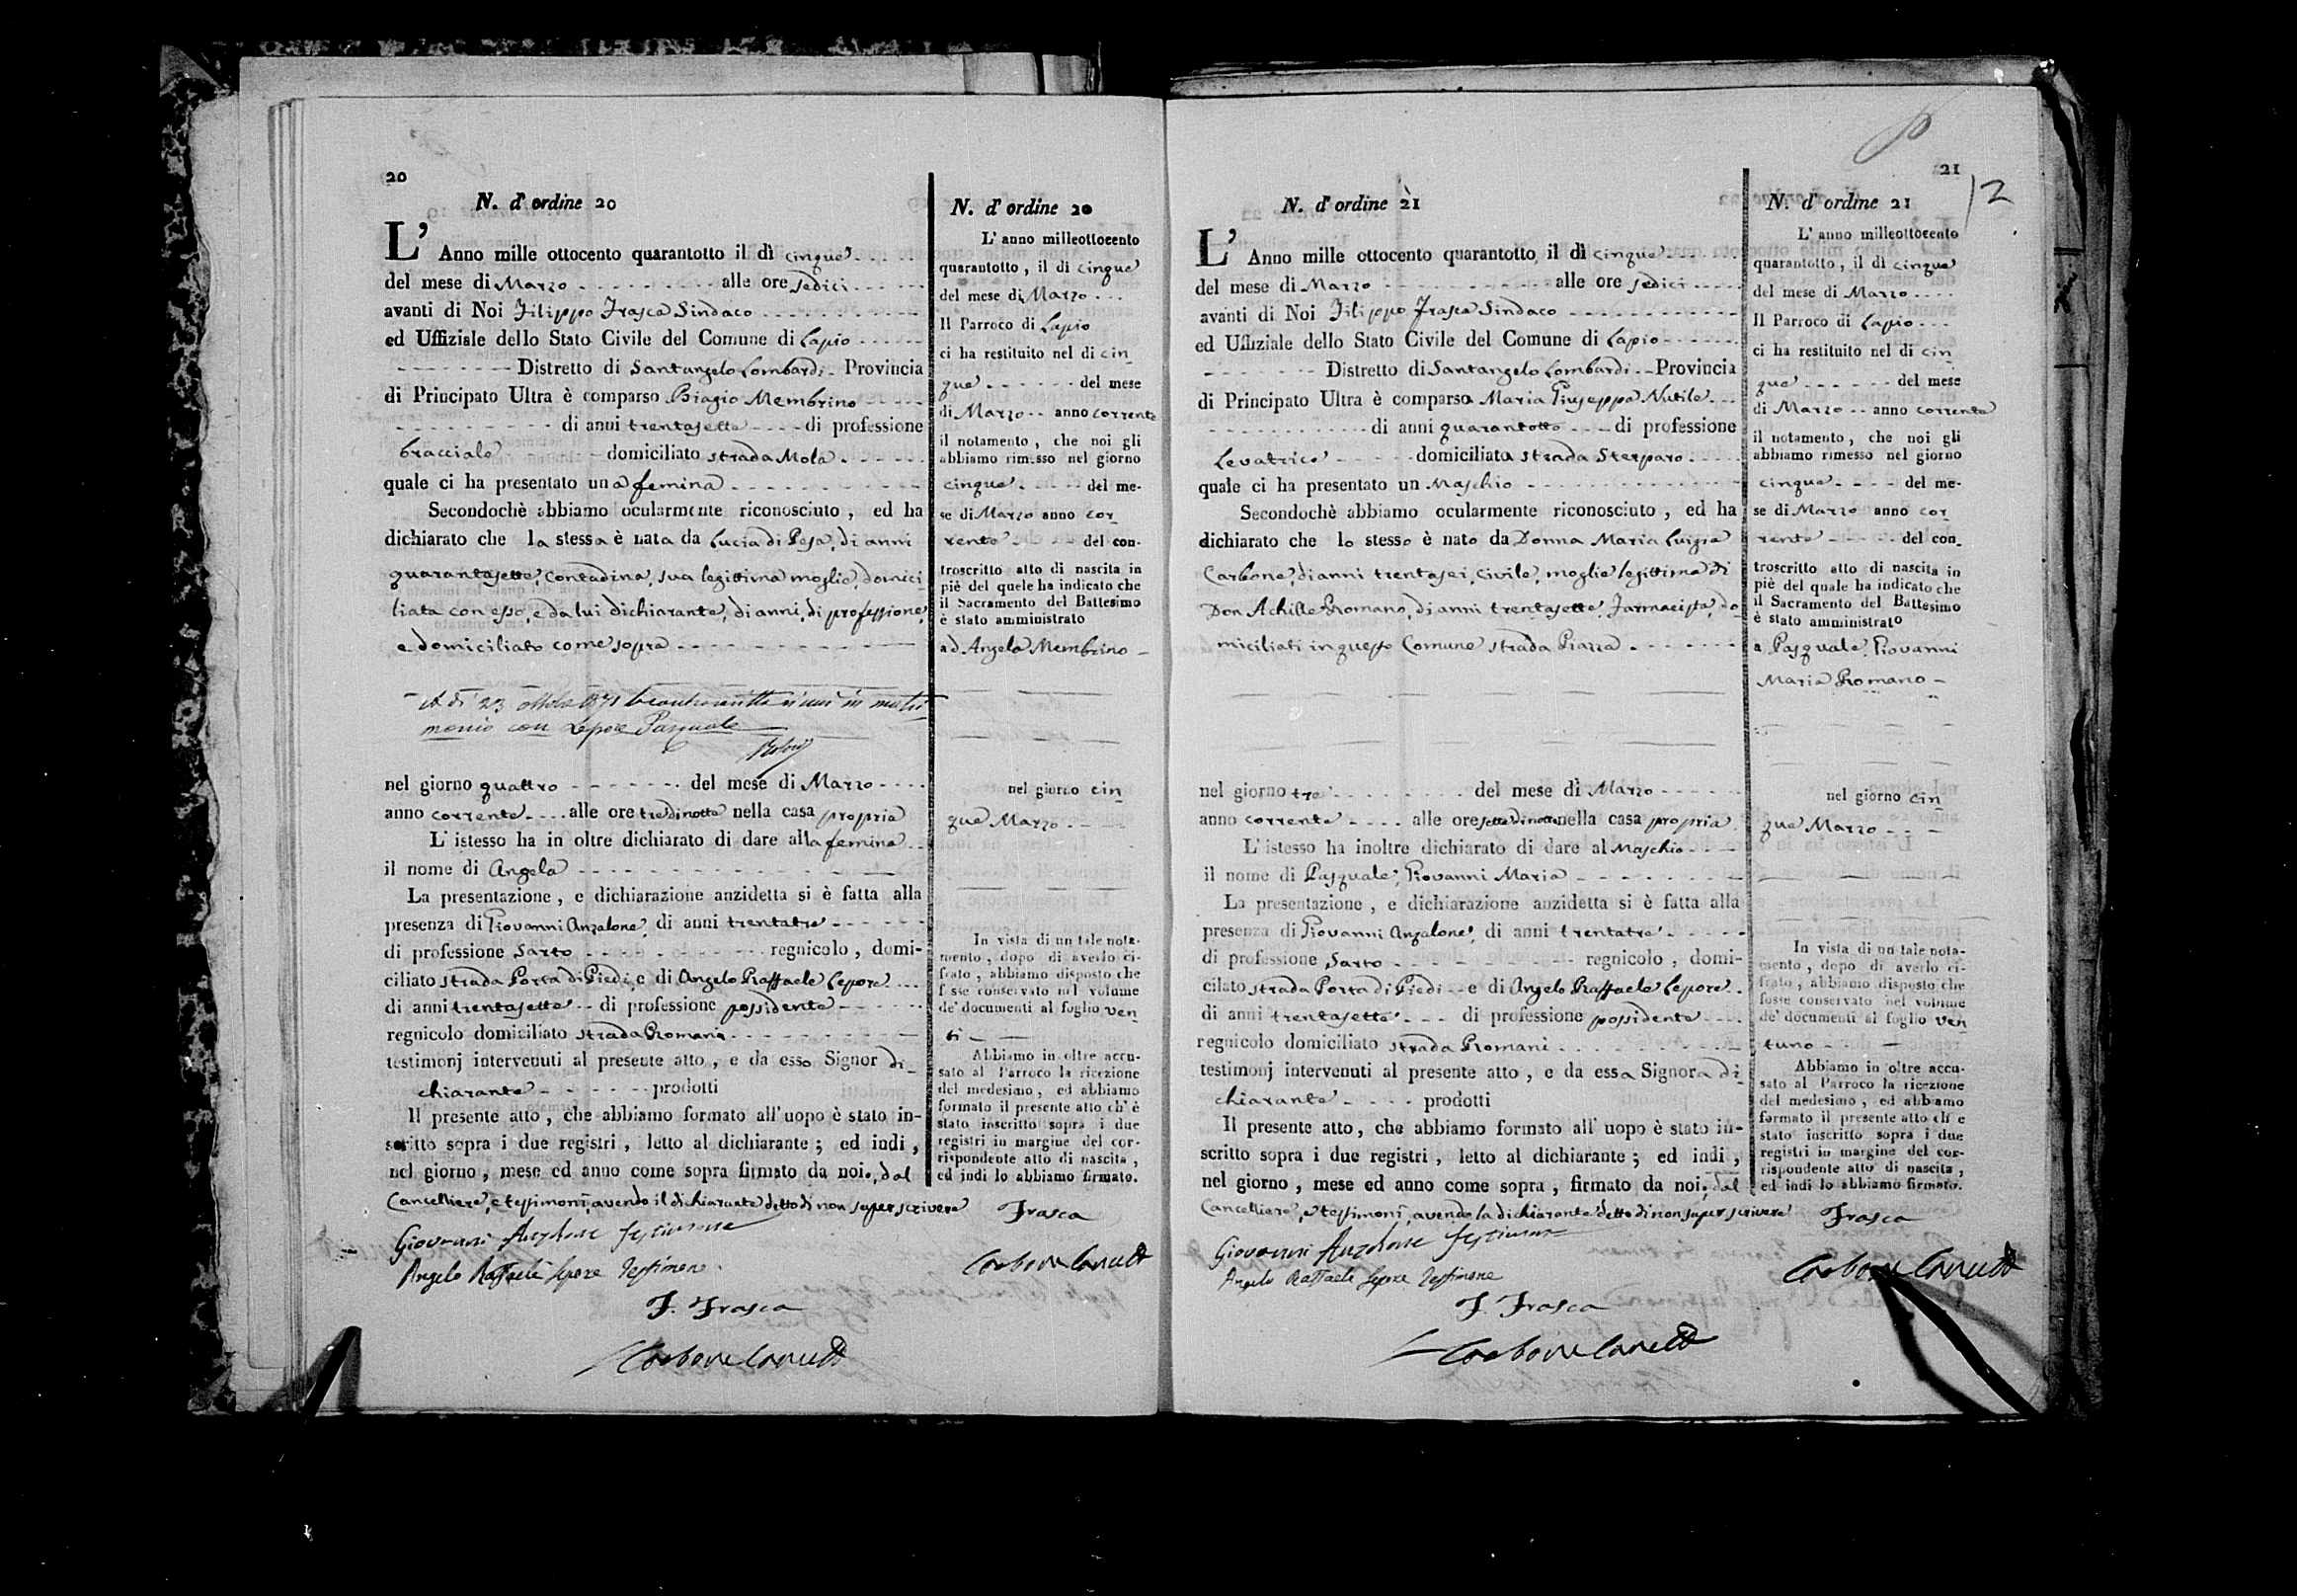 20
N. d'ordine 20
L' Anno mille ottocento quarantotto il dì cinque
del mese di Marzo alle ore sedici
avanti di Noi Filippo Frasca Sindaco
ed Uffiziale dello Stato Civile del Comune di Lapio
Distretto di Santangelo Lombardi Provincia
di Principato Ultra è comparso Biagio Membrino
di anni trentasette di professione
bracciale domiciliato strada Mola
quale ci ha presentato una femina
Secondochè abbiamo ocularmente riconosciuto, ed ha
dichiarato che la stessa è nata da Lucia di Pesa, di anni
quarantasette, contadina, sua legittima moglie domici
liata con esso, e da lui dichiarante, di anni, di professione,
e domiciliato come sopra
A dì 23 ottobre 1871 la controscritta si unì in matri
monio con Lepore Pasquale
nel giorno quattro del mese di Marzo
anno corrente alle ore tre di notte nella casa propria
L' istesso ha in oltre dichiarato di dare alla femina
il nome di Angela
La presentazione, e dichiarazione anzidetta si è fatta alla
presenza di Giovanni Anzalone, di anni trentatre
di professione Sarto regnicolo, domi-
ciliato strada Porta di Piedi, e di Angelo Raffaele Lepore
di anni trentasette di professione possidente
regnicolo domiciliato strada Romani
testimonj intervenuti al presente atto, e da esso Signor di
chiarante prodotti
Il presente atto, che abbiamo formato all'uopo è stato in-
scritto sopra i due registri, letto al dichiarante; ed indi,
nel giorno, mese ed anno come sopra firmato da noi, dal
Cancelliere, e testimoni, avendo il dichiarante detto di non saper scrivere
Giovanni Anzalone testimone
Angelo Raffaele Lepore Testimone
F. Frasca
Carbone Canc
N. d'ordine 20
L' anno milleottocento
quarantotto, il di cinque
del mese di Marzo
Il Parroco di Lapio
ci ha restituito nel di cin
que del mese
di Marzo anno corrente
il notamento, che noi gli
abbiamo rimesso nel giorno
cinque del me-
se di Marzo anno cor
rente del con-
troscritto atto di nascita in
piè del quele ha indicato che
il Sacramento del Battesimo
è stato amministrato
ad Angela Membrino
nel giorno cin
que Marzo
In vista di un tale nota-
mento, dopo di averlo ci-
frato, abbiamo disposto che
fosse conservato nel volume
de' documenti al foglio ven
ti
Abbiamo in oltre accu-
sato al Parroco la ricezione
del medesimo, ed abbiamo
formato il presente atto ch'è
stato inscritto sopra i due
registri in margine del cor-
rispondente atto di nascita,
ed indi lo abbiamo firmato.
Frasca
Carbone Canc
21
12
N. d'ordine 21
L' Anno mille ottocento quarantotto, il dì cinque
del mese di Marzo alle ore sedici
avanti di Noi Filippo Frasca Sindaco
ed Uffiziale dello Stato Civile del Comune di Lapio
Distretto di Santangelo Lombardi Provincia
di Principato Ultra è comparsa Maria Giuseppa Nutile
di anni quarantotto di professione
Levatrice domiciliata strada Sterparo
quale ci ha presentato un Maschio
Secondochè abbiamo ocularmente riconosciuto, ed ha
dichiarato che lo stesso è nato da Donna Maria Luigia
Carbone, di anni trentasei, civile, moglie legittima di
Don Achille Romano, di anni trentasette, Farmacista, do
miciliati in questo Comune strada Piazza
nel giorno tre del mese di Marzo
anno corrente alle ore sette di notte nella casa propria
L' istesso ha inoltre dichiarato di dare al Maschio
il nome di Pasquale, Giovanni Maria
La presentazione, e dichiarazione anzidetta si è fatta alla
presenza di Giovanni Anzalone, di anni trentatre
di professione Sarto regnicolo, domi-
cilato strada Porta di Piedi e di Angelo Raffaele Lepore
di anni trentasette di professione possidente
regnicolo domiciliato strada Romani
testimonj intervenuti al presente atto, e da essa Signora di
chiarante prodotti
Il presente atto, che abbiamo formato all' uopo è stato in-
scritto sopra i due registri, letto al dichiarante; ed indi,
nel giorno, mese ed anno come sopra, firmato da noi, dal
Cancelliere, e testimoni, avendo la dichiarante detto di non saper scrivere
Giovanni Anzalone testimone
Angelo Raffaele Lepore Testimone
F. Frasca
Carbone Canc
N. d'ordine 21
L' anno milleottocento
quarantotto, il di cinque
del mese di Marzo
Il Parroco di Lapio
ci ha restituito nel di cin
que del mese
di Marzo anno corrente
il notamento, che noi gli
abbiamo rimesso nel giorno
cinque del me-
se di Marzo anno cor
rente del con-
troscritto atto di nascita in
piè del quale ha indicato che
il Sacramento del Battesimo
è stato amministrato
a Pasquale, Giovanni
Maria Romano
nel giorno cin
que Marzo
In vista di un tale nota-
mento, dopo di averlo ci-
frato, abbiamo disposto che
fosse conservato nel volume
de' documenti al foglio ven
tuno
Abbiamo in oltre accu-
sato al Parroco la ricezione
del medesimo, ed abbiamo
formato il presente atto ch'è
stato inscritto sopra i due
registri in margine del cor-
rispondente atto di nascita,
ed indi lo abbiamo firmato.
Frasca
Carbone Canc